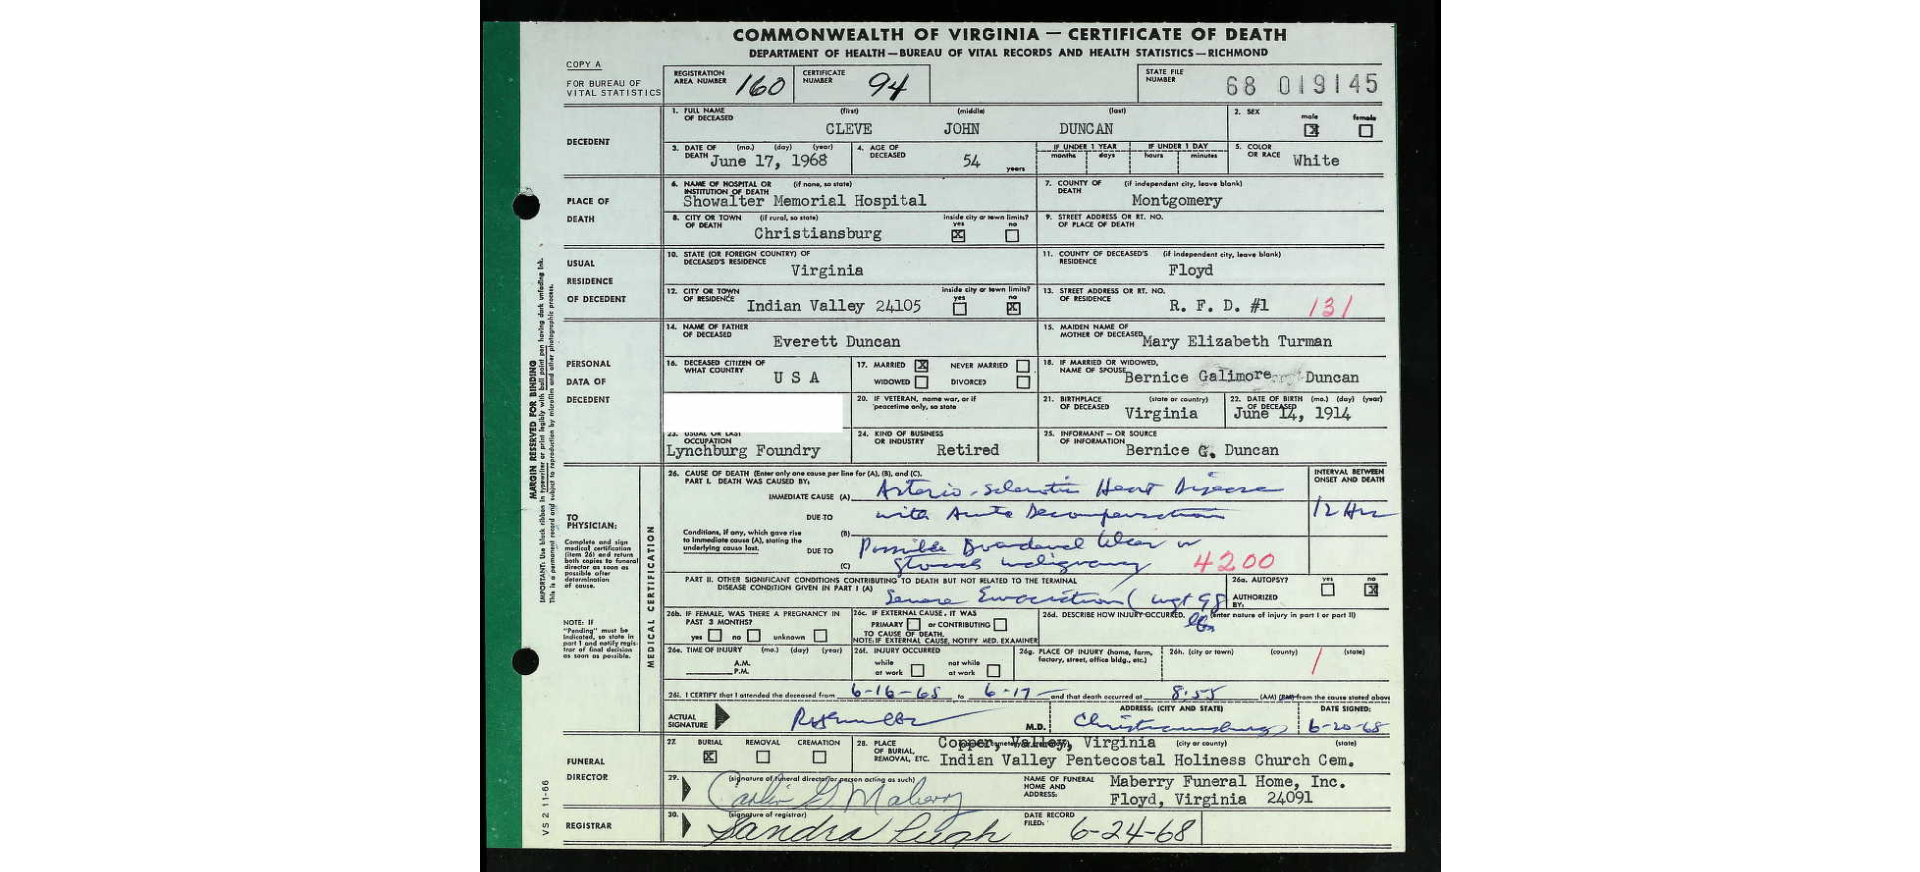 COMMONWEALTH OF VIRGINIA — CERTIFICATE OF DEATH
DEPARTMENT OF HEALTH—BUREAU OF VITAL RECORDS AND HEALTH STATISTICS—RICHMOND
COPY A
FOR BUREAU OF VITAL STATISTICS
REGISTRATION AREA NUMBER 160
CERTIFICATE NUMBER 94
STATE FILE NUMBER 68 019145
DECEDENT
1. FULL NAME OF DECEASED (first) (middle) (last)
CLEVE JOHN DUNCAN
2. SEX male X female
3. DATE OF DEATH (mo.) (day) (year) June 17, 1968
4. AGE OF DECEASED 54 years
IF UNDER 1 YEAR months days
IF UNDER 1 DAY hours minutes
5. COLOR OR RACE White
PLACE OF DEATH
6. NAME OF HOSPITAL OR INSTITUTION OF DEATH (if none, so state)
Showalter Memorial Hospital
7. COUNTY OF DEATH (if independent city, leave blank)
Montgomery
8. CITY OR TOWN OF DEATH (if rural, so state) Christiansburg
inside city or town limits? yes X no
9. STREET ADDRESS OR RT. NO. OF PLACE OF DEATH
USUAL RESIDENCE OF DECEDENT
10. STATE (OR FOREIGN COUNTRY) OF DECEASED'S RESIDENCE
Virginia
11. COUNTY OF DECEASED'S RESIDENCE (if independent city, leave blank)
Floyd
12. CITY OR TOWN OF RESIDENCE Indian Valley 24105
inside city or town limits? yes no X
13. STREET ADDRESS OR RT. NO. OF RESIDENCE R. F. D. #1 131
PERSONAL DATA OF DECEDENT
14. NAME OF FATHER OF DECEASED
Everett Duncan
15. MAIDEN NAME OF MOTHER OF DECEASED Mary Elizabeth Turman
16. DECEASED CITIZEN OF WHAT COUNTRY U S A
17. MARRIED X NEVER MARRIED
WIDOWED DIVORCED
18. IF MARRIED OR WIDOWED, NAME OF SPOUSE Bernice Galimore Duncan
20. IF VETERAN, name war, or if peacetime only, so state
21. BIRTHPLACE OF DECEASED (state or country) Virginia
22. DATE OF BIRTH OF DECEASED (mo.) (day) (year) June 14, 1914
23. USUAL OR LAST OCCUPATION
Lynchburg Foundry
24. KIND OF BUSINESS OR INDUSTRY Retired
25. INFORMANT — OR SOURCE OF INFORMATION Bernice G. Duncan
MARGIN RESERVED FOR BINDING
IMPORTANT: Use black ribbon in typewriter or print legibly with ball point pen having dark unfading ink.
This is a permanent record and subject to reproduction by microfilm and other photographic process.
TO PHYSICIAN:
Complete and sign medical certification (item 26) and return both copies to funeral director as soon as possible after determination of cause.
NOTE: If "Pending" must be indicated, so state in part 1 and notify registrar of final decision as soon as possible.
MEDICAL CERTIFICATION
26. CAUSE OF DEATH (Enter only one cause per line for (A), (B), and (C).
PART I. DEATH WAS CAUSED BY,
INTERVAL BETWEEN ONSET AND DEATH
IMMEDIATE CAUSE (A) Arterio-sclerotic Heart Disease
DUE TO with Acute Decompensation 12 Hrs
Conditions, if any, which gave rise to immediate cause (A), stating the underlying cause last.
(B)
DUE TO Possible Duodenal Ulcer or
(C) stomach malignancy 4200
PART II. OTHER SIGNIFICANT CONDITIONS CONTRIBUTING TO DEATH BUT NOT RELATED TO THE TERMINAL DISEASE CONDITION GIVEN IN PART I (A)
Severe Emaciation (wgt 98 lbs
26a. AUTOPSY? yes no X
AUTHORIZED BY:
26b. IF FEMALE, WAS THERE A PREGNANCY IN PAST 3 MONTHS?
yes no unknown
26c. IF EXTERNAL CAUSE, IT WAS
PRIMARY or CONTRIBUTING
TO CAUSE OF DEATH.
NOTE: IF EXTERNAL CAUSE, NOTIFY MED. EXAMINER
26d. DESCRIBE HOW INJURY OCCURRED. (Enter nature of injury in part I or part II)
26e. TIME OF INJURY (mo.) (day) (year)
A.M.
P.M.
26f. INJURY OCCURRED
while at work not while at work
26g. PLACE OF INJURY (home, farm, factory, street, office bldg., etc.)
26h. (city or town) (county) (state)
26i. I CERTIFY that I attended the deceased from 6-16-65 to 6-17 and that death occurred at 8:55 (AM) (PM) from the cause stated above
ACTUAL SIGNATURE M.D.
ADDRESS: (CITY AND STATE) Christiansburg
DATE SIGNED: 6-20-68
FUNERAL DIRECTOR
27. BURIAL X REMOVAL CREMATION
28. PLACE OF BURIAL, REMOVAL, ETC. (city or county) (state)
Copper, Valley, Virginia
Indian Valley Pentecostal Holiness Church Cem.
29. (signature of funeral director or person acting as such)
Carlin G Maberry
NAME OF FUNERAL HOME AND ADDRESS: Maberry Funeral Home, Inc.
Floyd, Virginia 24091
REGISTRAR
30. (signature of registrar)
Sandra Pugh
DATE RECORD FILED: 6-24-68
VS 2 11-66